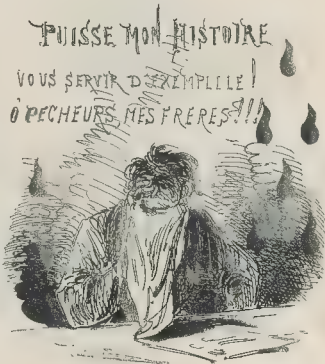 PUISSE MON HISTOIRE
VOUS SERVIR D'EXEMPLLE!
Ô PECHEURS, MES FRERES!!!